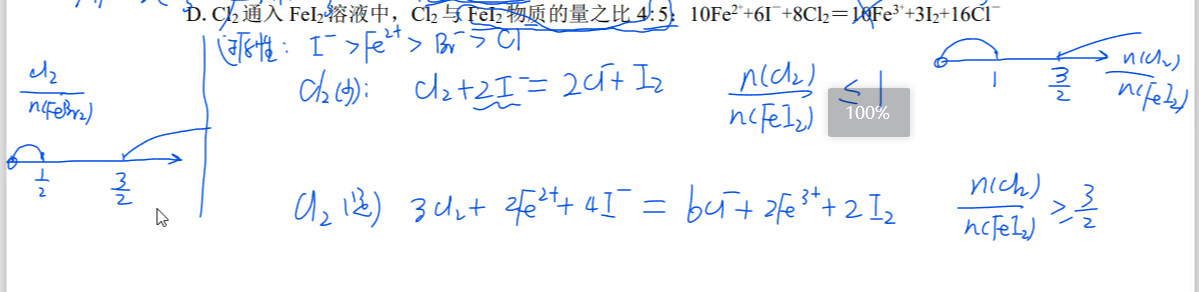 D. Cl₂ 通入 FeI₂ 溶液中，Cl₂ 与 FeI₂ 物质的量之比 4:5：10Fe²⁺+6I⁻+8Cl₂＝10Fe³⁺+3I₂+16Cl⁻
还原性： I⁻ > Fe²⁺ > Br⁻ > Cl⁻
Cl₂
n(FeBr₂)
1/2
3/2
Cl₂(少)： Cl₂+2I⁻= 2Cl⁻+ I₂
n(Cl₂)/n(FeI₂) ≤ 1
100%
1
3/2
n(Cl₂)/n(FeI₂)
Cl₂ (过) 3Cl₂+ 2Fe²⁺+ 4I⁻ = 6Cl⁻+ 2Fe³⁺+ 2I₂
n(Cl₂)/n(FeI₂) ≥ 3/2